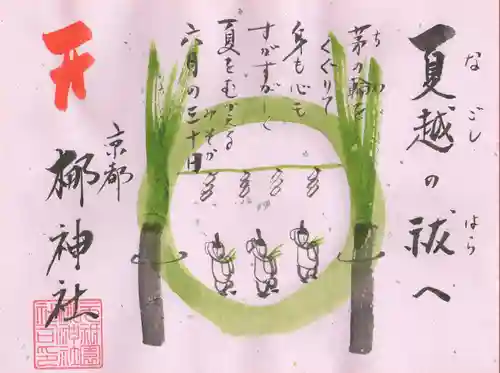 夏越の祓へ
なごし
はら
茅の輪を
ち
わ
くぐりて
身も心も
すがすがしく
夏をむかえる
六月の三十日
みそか
京都
梛神社